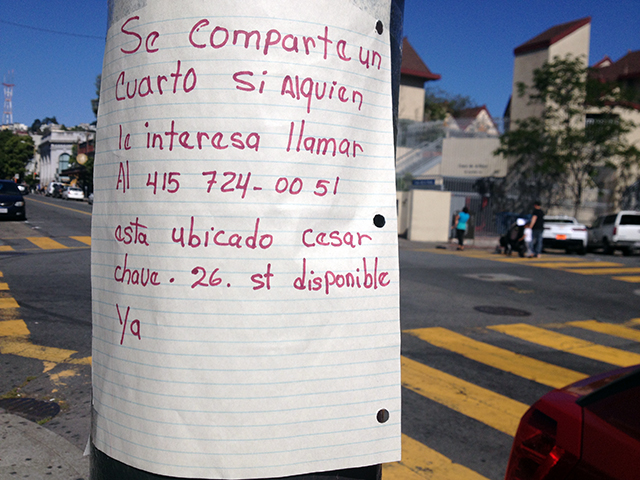 Se comparte un
Cuarto Si Alquien
le interesa llamar
Al 415 724-0051
esta ubicado cesar
chave. 26. st disponible
Ya